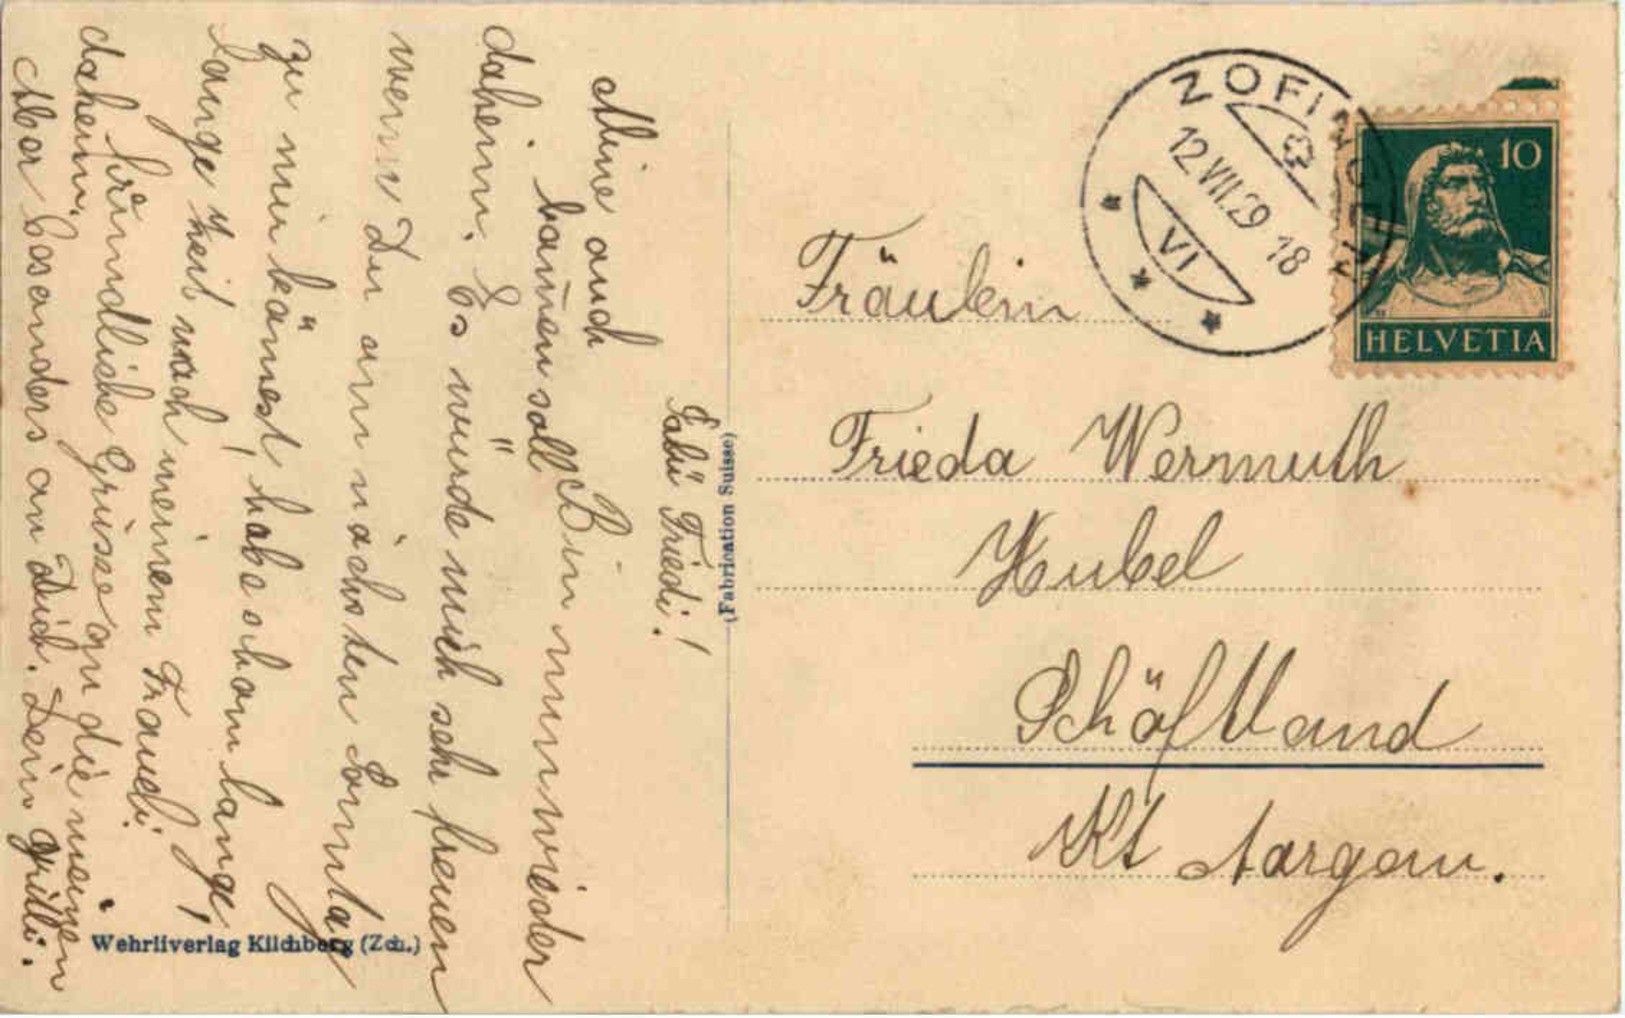 Salü Friedi!
Bin nun wieder
daheim. Es würde mich sehr freuen
wenn Du am nächsten Sonntag
zu mir kämest, habe schon lange
lange Zeit nach meinem Fraueli!
Freundliche Grüsse an die
daheim.
Aber besonders an Dich. Dein
auch
kommen soll
(Fabrication Suisse)
Wehrliverlag Kilchberg (Zch.)
ZOFINGEN
12.VII.29 18
VI
10
HELVETIA
Fräulein
Frieda Wermuth
Hubel
Schöftland
Kt Aargau.